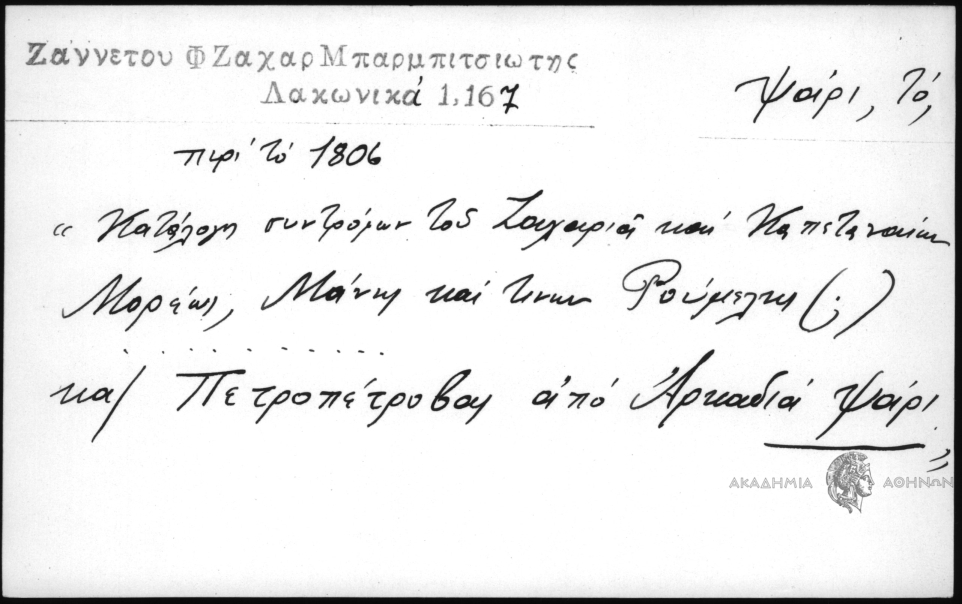 Ζαννετου Φ Ζαχαρ Μπαρμπιτσιωτης
Λακωνικά 1,167
Ψάρι, τό,
περί τό 1806
“ Κατάλογη συντρόφων τοῦ Ζαχαριᾶ καί Καπεταναίων
Μορέως, Μάνης καί τινων Ρούμελης (;)
. . . . . . . . . .
κα/ Πετροπέτροβας ἀπό Ἀρκαδιά Ψάρι
”
ΑΚΑΔΗΜΙΑ ΑΘΗΝΩΝ